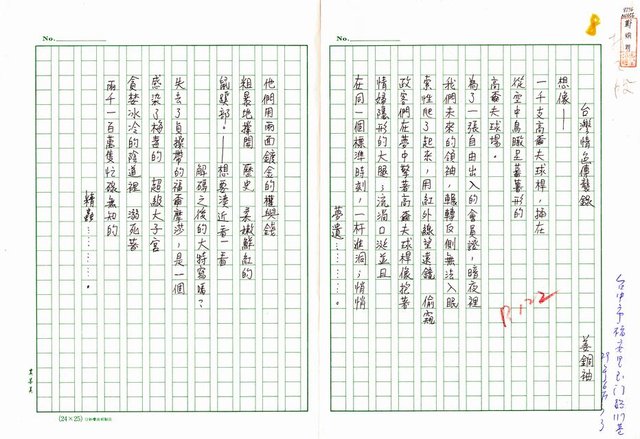 台灣情色傳播錄
姜銅袖
想像——
一千支高爾夫球桿，插在
從空中鳥瞰呈蕃薯形的
高爾夫球場。
為了一張自由出入的會員證，暗夜裡
我們未來的領袖，輾轉反側無法入眠
索性爬了起來，用紅外線望遠鏡 偷窺
政客們在夢中緊摟高爾夫球桿像抱著
情婦隱形的大腿；流滿口涎並且
在同一個標準時刻，一杆進洞；悄悄
夢遺………。
R122
No.
他們用兩面鍍金的權與錢
粗暴地撐開 歷史 柔嫩鮮紅的
鼠蹊部。——想要湊近看一看
解碼之後的大特寫嗎？
失去了貞操帶的福爾摩莎，是一個
感染了梅毒的 超級大子宮
貪婪冰冷的陰道裡 溺死著
兩千一百萬隻忙碌無知的
精蟲………。
No.
(24×25)